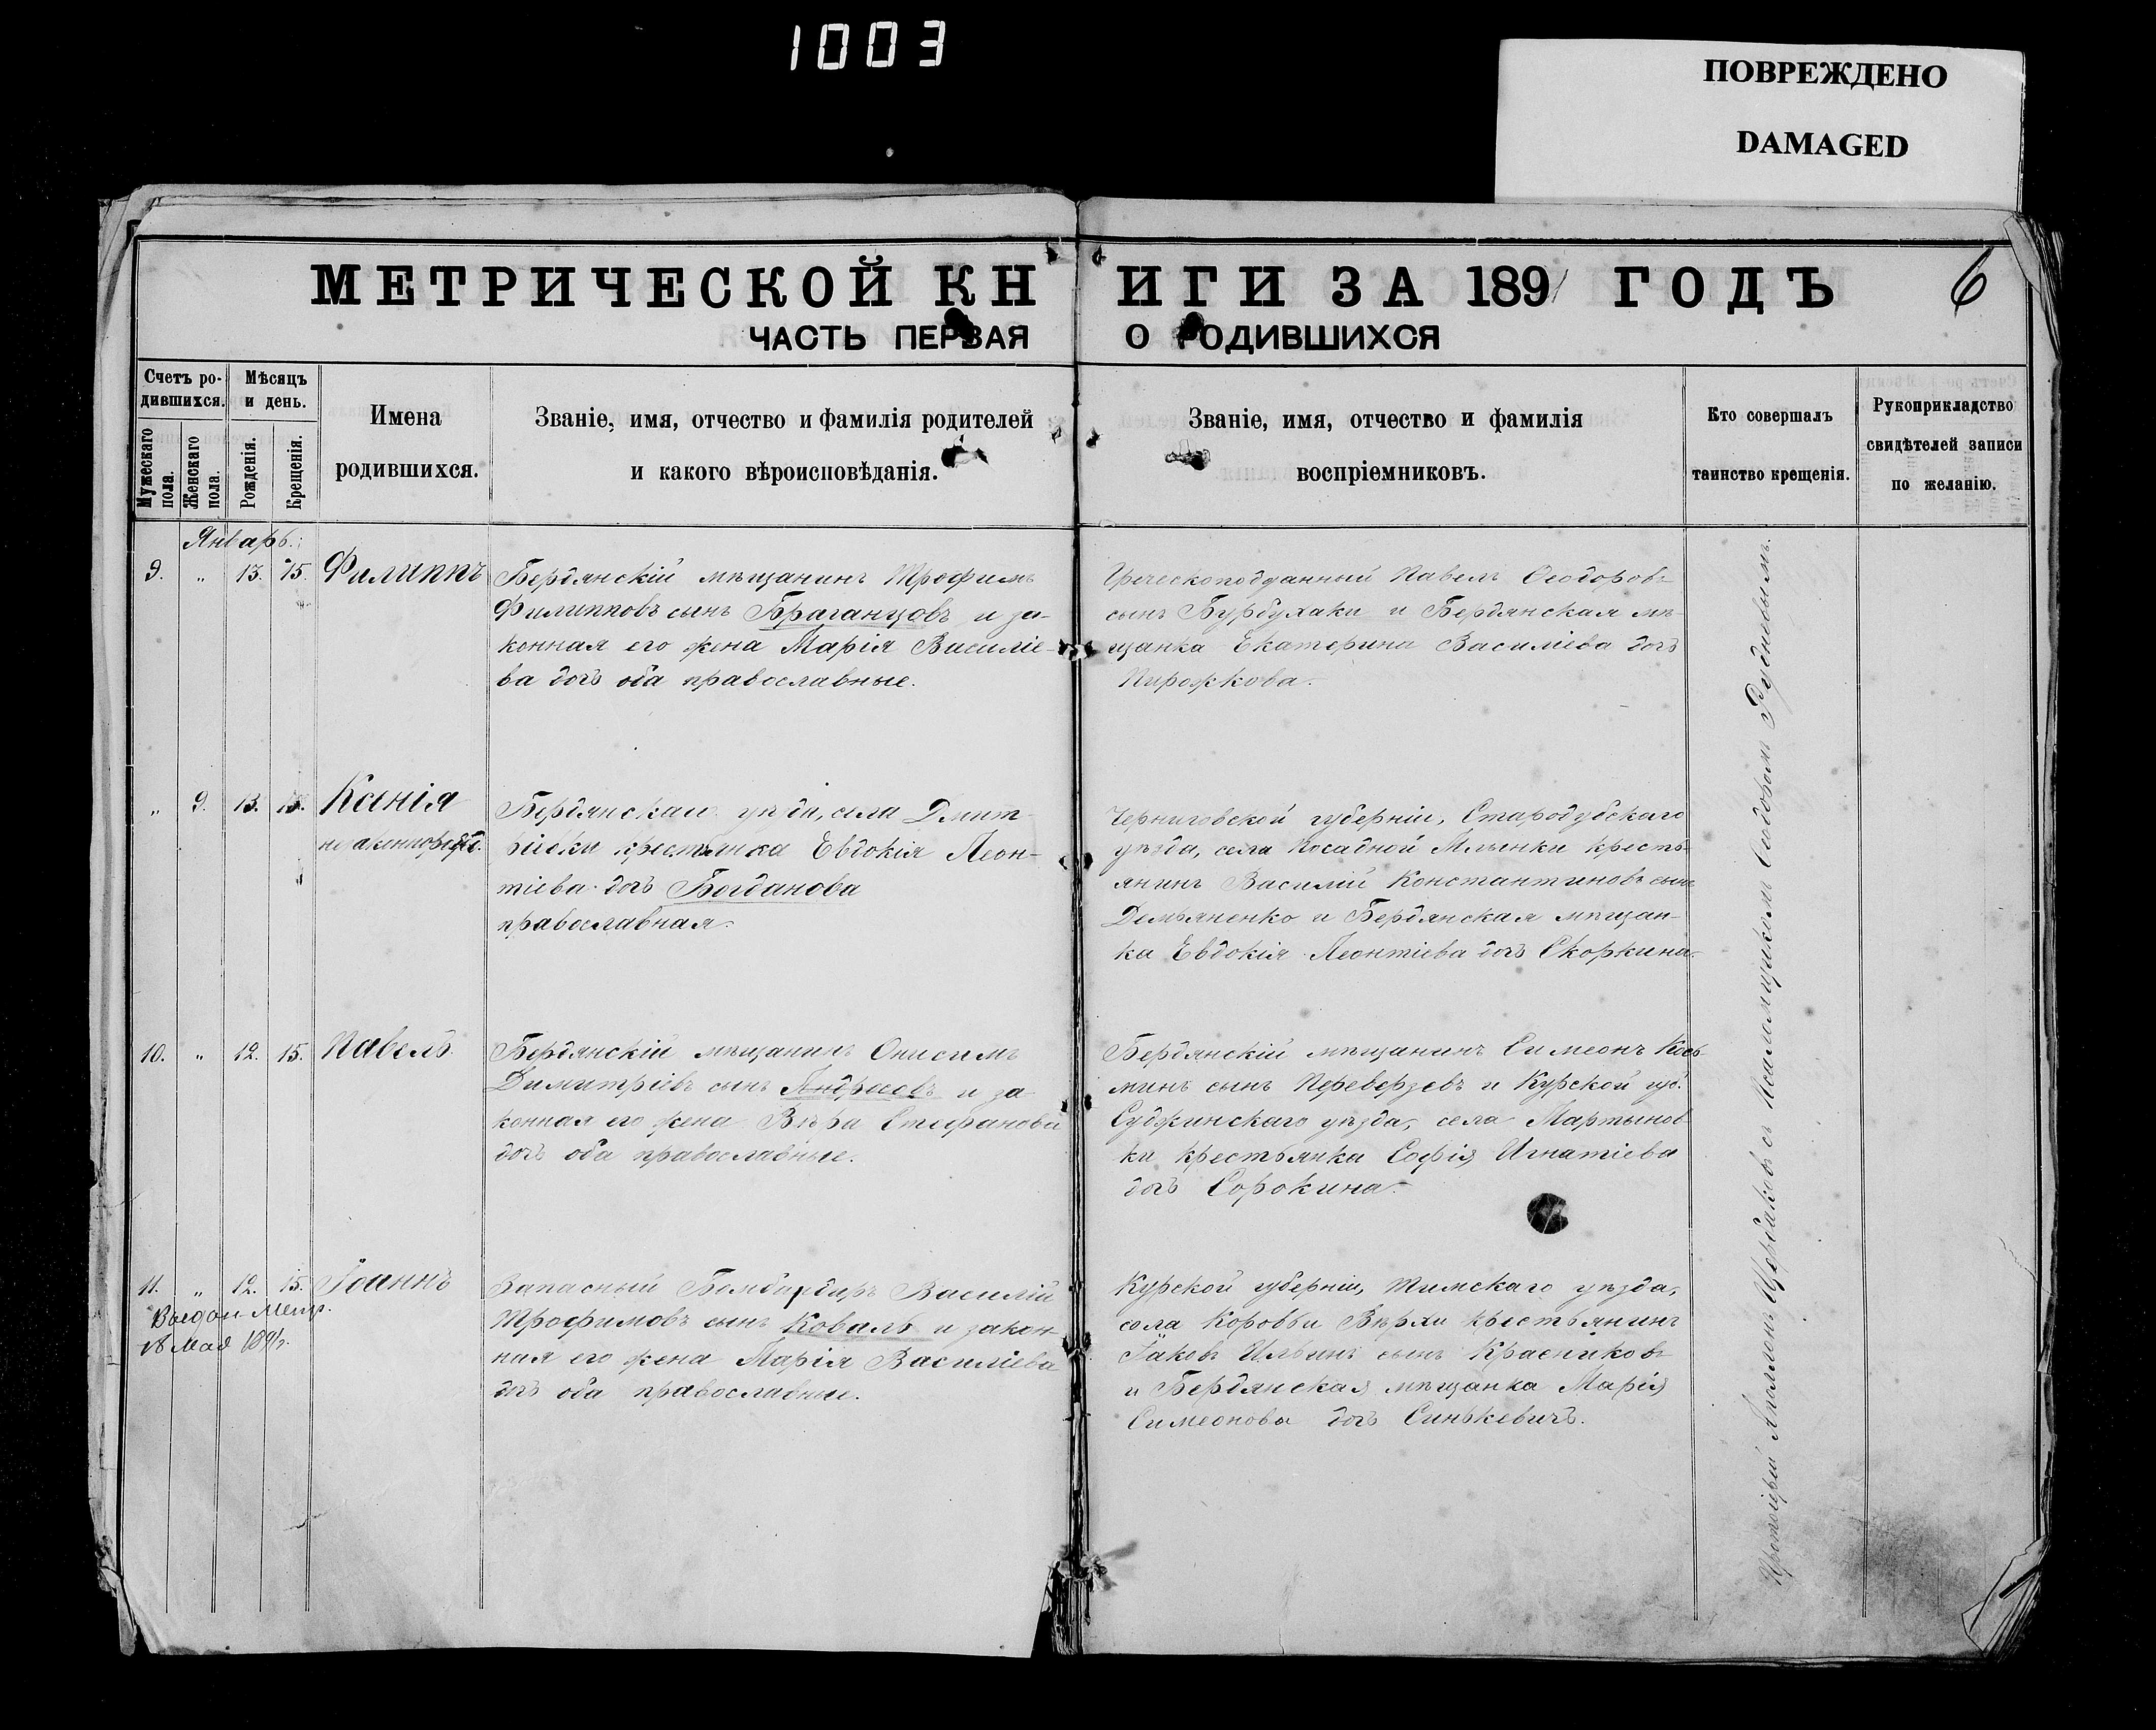 1003
ПОВРЕЖДЕНО
DAMAGED
МЕТРИЧЕСКОЙ КНИГИ ЗА 1891 ГОДЪ
6
ЧАСТЬ ПЕРВАЯ О РОДИВШИХСЯ
Счетъ ро-
дившихся.
Мужескаго пола.
Женскаго пола.
Мѣсяцъ
и день.
Рожденія.
Крещенія.
Имена
родившихся.
Званіе, имя, отчество и фамилія родителей
и какого вѣроисповѣданія.
Званіе, имя, отчество и фамилія
воспріемниковъ.
Кто совершалъ
таинство крещенія.
Рукоприкладство
свидѣтелей записи
по желанію.
Январь.
9. " 13. 15. Филиппъ
Бердянскій мѣщанинъ Трофимъ
Филипповъ сынъ Браганцовъ и за-
конная его жена Марія Василіе-
ва дочь оба православные.
Греческоподданный Павелъ Ѳеодоровъ
сынъ Бурдулаки и Бердянская мѣ-
щанка Екатерина Василіева дочь
Пирожкова.
" 9. 13. 15. Ксенія
Бердянскаго уѣзда, села Дмит-
ріевки крестьянка Евдокія Леон-
тіева дочь Богданова
православная.
Черниговской губерніи, Стародубскаго
уѣзда, села Посадной Млынки кресть-
янинъ Василій Константиновъ сынъ
Демьяненко и Бердянская мѣщан-
ка Евдокія Леонтіева дочь Скоркина.
10. " 12. 15. Павелъ.
Бердянскій мѣщанинъ Онисимъ
Димитріевъ сынъ Андреевъ и за
конная его жена Вѣра Стефанова
дочь оба православные.
Бердянскій мѣщанинъ Симеонъ Кось-
минъ сынъ Переверзевъ и Курской губ.
Суджинскаго уѣзда, села Мартынов-
ки крестьянка Софія Игнатіева
дочь Сорокина.
11. " 12. 15. Іоаннъ
Выдан. Метр.
18 Мая 1891г.
Запасный Бомбардиръ Василій
Трофимовъ сынъ Коваль и закон-
ная его жена Марія Василіева
дочь оба православные.
Курской губерніи, Тимскаго уѣзда,
села Коровьи Верхи крестьянинъ
Іаковъ Ильинъ сынъ Красниковъ
и Бердянская мѣщанка Марія
Симеонова дочь Синькевичъ.
Протоіерей Щербаковъ съ Псаломщикомъ Рудневымъ.